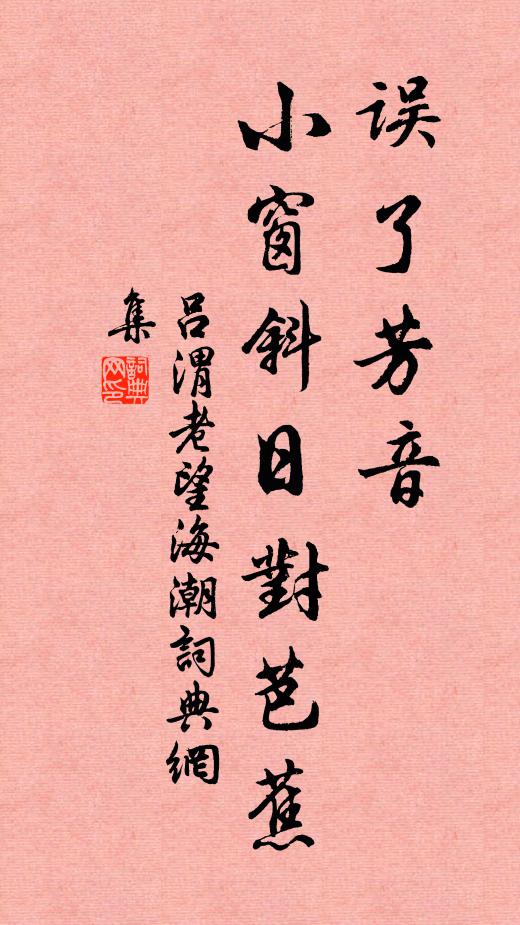 误了芳音
小窗斜日對芭蕉
呂渭老望海潮詞典網
集
詞典网印